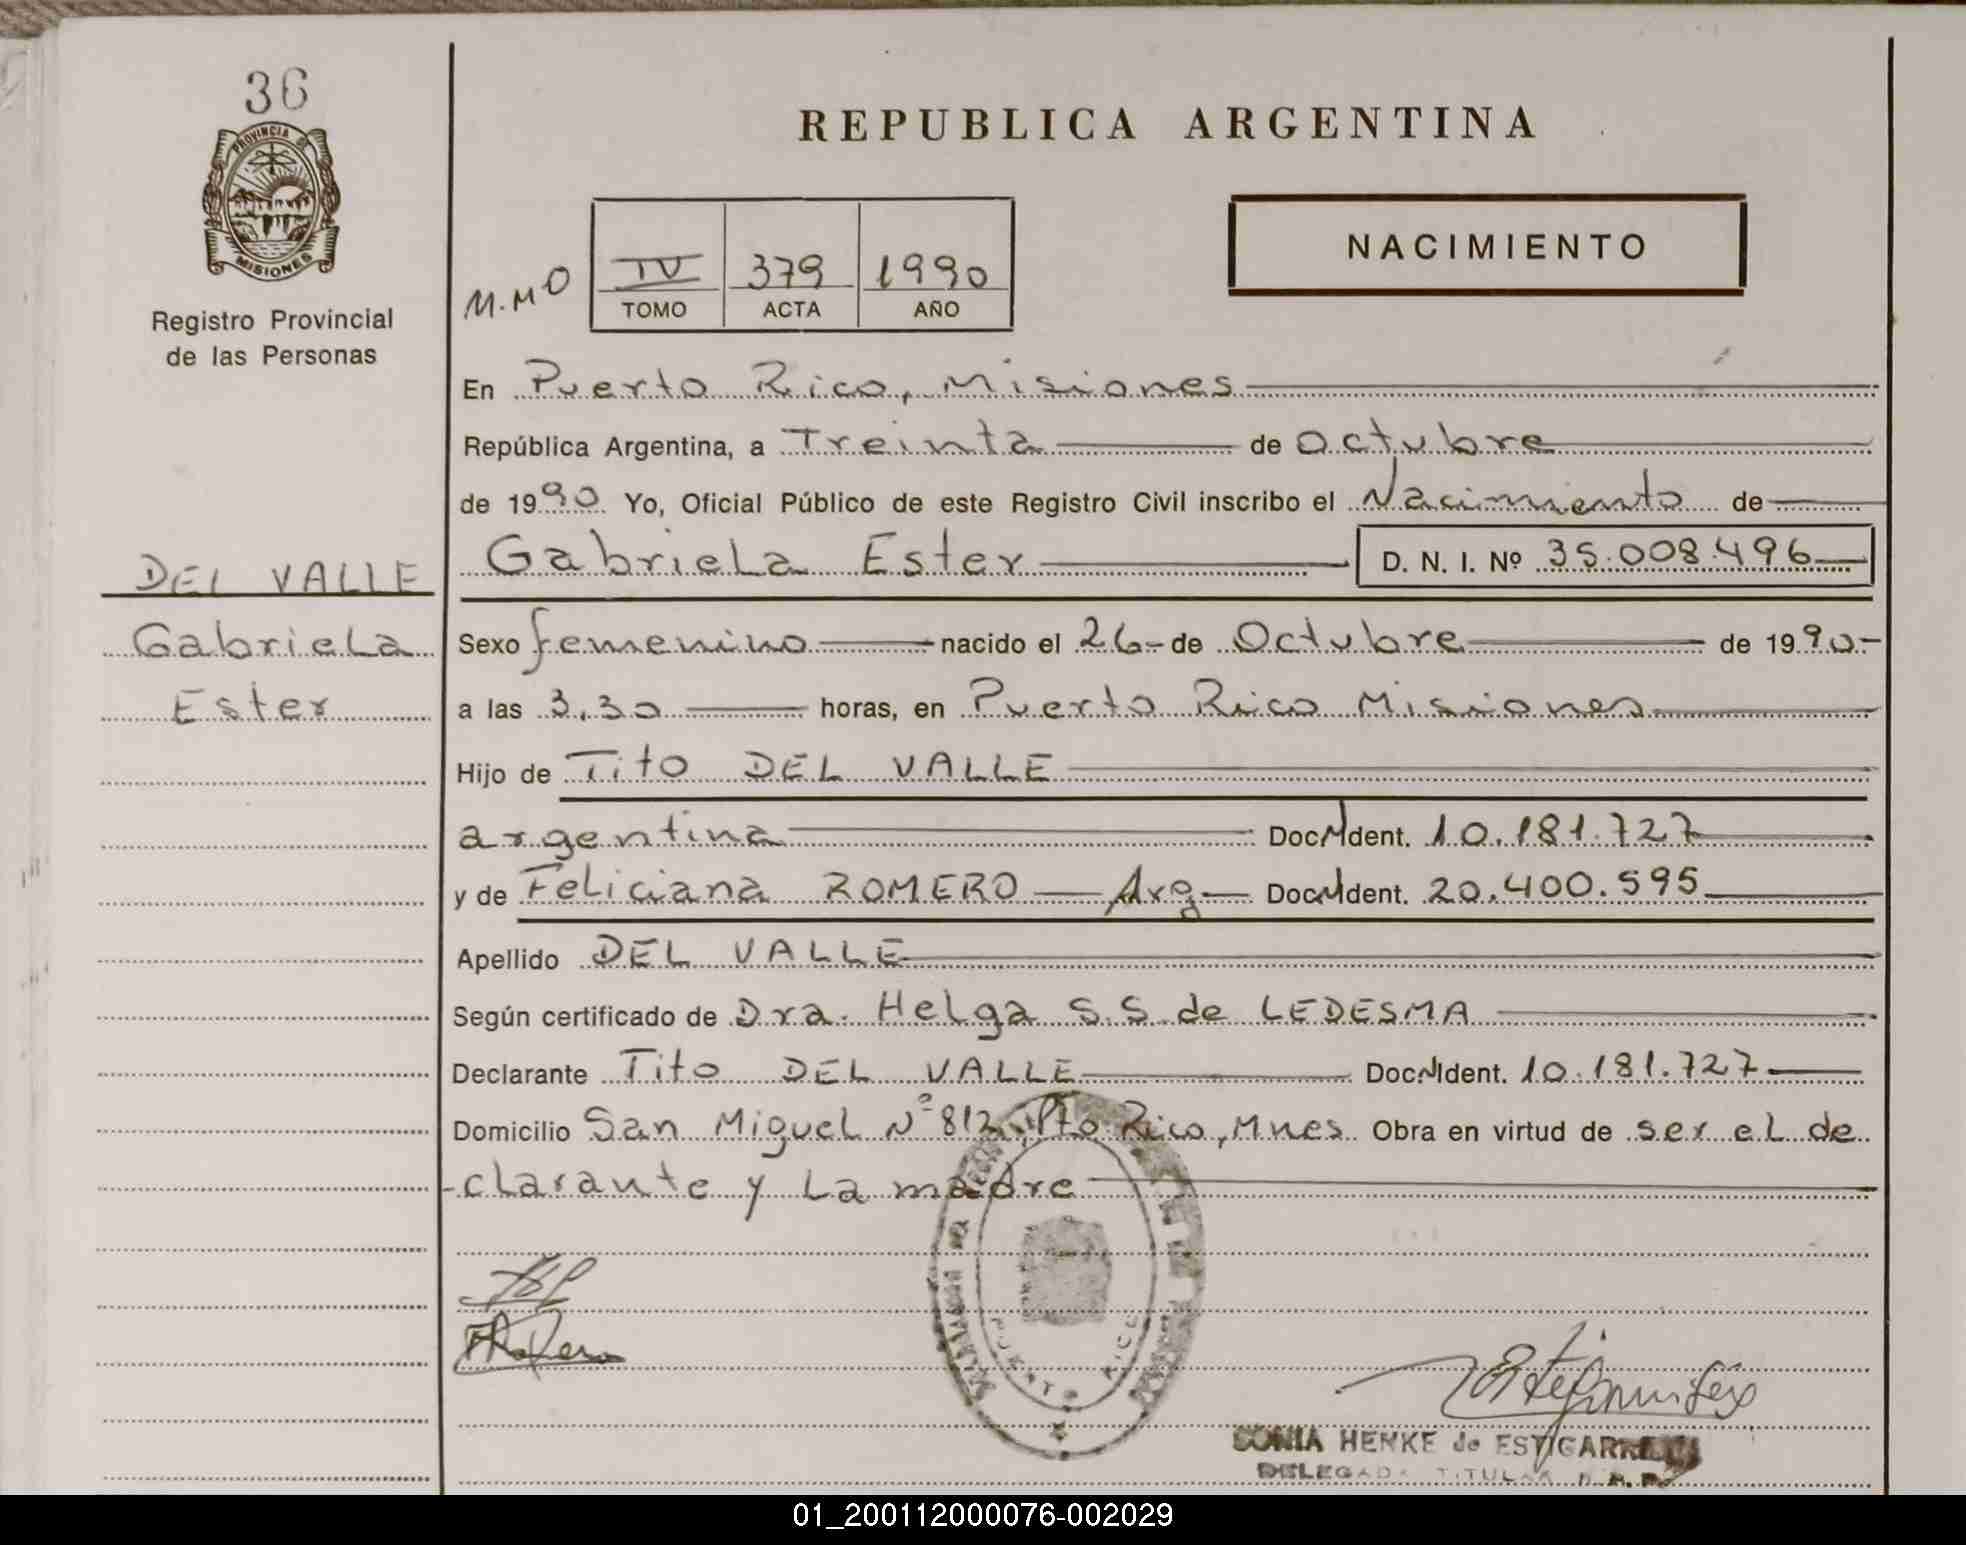 36
PROVINCIA DE
MISIONES
Registro Provincial
de las Personas
DEL VALLE
Gabriela
Ester
REPUBLICA ARGENTINA
NACIMIENTO
M.MO
IV 379 1990
TOMO ACTA AÑO
En Puerto Rico, Misiones
República Argentina, a Treinta de Octubre
de 1990 Yo, Oficial Público de este Registro Civil inscribo el Nacimiento de
Gabriela Ester D. N. I. Nº 35.008.496
Sexo femenino nacido el 26 de Octubre de 1990
a las 3,30 horas, en Puerto Rico Misiones
Hijo de Tito DEL VALLE
argentina Doc. Ident. 10.181.727
y de Feliciana ROMERO Arg Doc. Ident. 20.400.595
Apellido DEL VALLE
Según certificado de Dra. Helga S.S. de LEDESMA
Declarante Tito DEL VALLE Doc. Ident. 10.181.727
Domicilio San Miguel Nº 812, Pto Rico, Mnes Obra en virtud de ser el de
-clarante y la madre
PUERTO RICO
SONIA HENKE de ESTIGARRIBIA
DELEGADA TITULAR R. P. P.
01_200112000076-002029